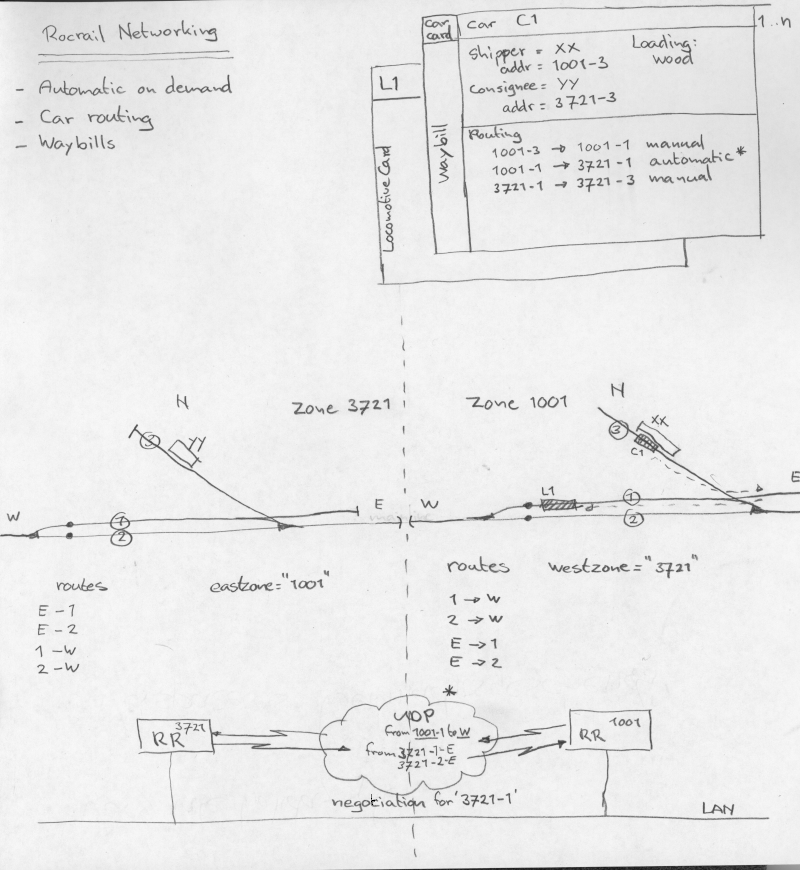 Rocrail Networking
- Automatic on demand
- Car routing
- Waybills
L1
Locomotive Card
car card
car C1
1..n
Waybill
Shipper = XX
addr = 1001-3
Consignee = YY
addr = 3721-3
Loading:
wood
Routing
1001-3 → 1001-1 manual
1001-1 → 3721-1 automatic *
3721-1 → 3721-3 manual
N
Zone 3721
3
YY
W
1
2
E
routes
eastzone="1001"
E - 1
E - 2
1 - W
2 - W
Zone 1001
N
3
XX
C1
E
W
L1
1
2
routes
westzone="3721"
1 → W
2 → W
E → 1
E → 2
*
RR 3721
UDP
from 1001-1 to W
from 3721-1-E
3721-2-E
RR 1001
negotiation for '3721-1'
LAN